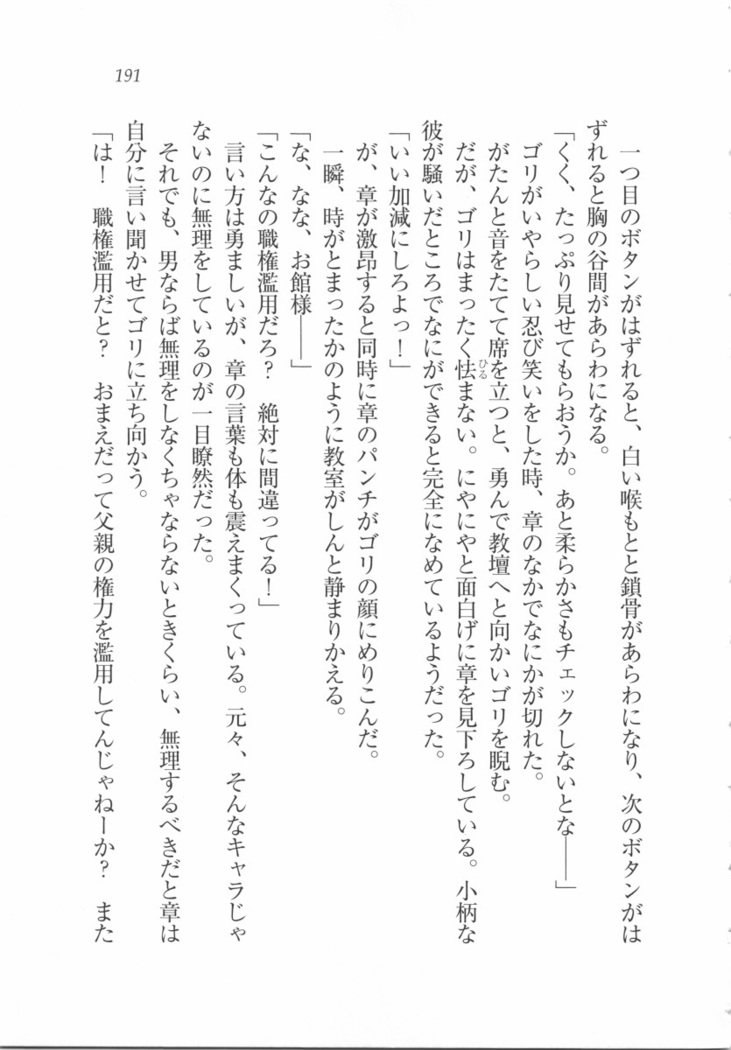 191
一つ目のボタンがはずれると、白い喉もとと鎖骨があらわになり、次のボタンがは
ずれると胸の谷間があらわになる。
「くく、たっぷり見せてもらおうか。あと柔らかさもチェックしないとな――」
ゴリがいやらしい忍び笑いをした時、章のなかでなにかが切れた。
がたんと音をたてて席を立つと、勇んで教壇へと向かいゴリを睨む。
だが、ゴリはまったく怯まない。にやにやと面白げに章を見下ろしている。小柄な
ひる
彼が騒いだところでなにができると完全になめているようだった。
「いい加減にしろよっ！」
が、章が激昂すると同時に章のパンチがゴリの顔にめりこんだ。
一瞬、時がとまったかのように教室がしんと静まりかえる。
「な、なな、お館様――」
「こんなの職権濫用だろ？　絶対に間違ってる！」
言い方は勇ましいが、章の言葉も体も震えまくっている。元々、そんなキャラじゃ
ないのに無理をしているのが一目瞭然だった。
それでも、男ならば無理をしなくちゃならないときくらい、無理するべきだと章は
自分に言い聞かせてゴリに立ち向かう。
「は！　職権濫用だと？　おまえだって父親の権力を濫用してんじゃねーか？　また